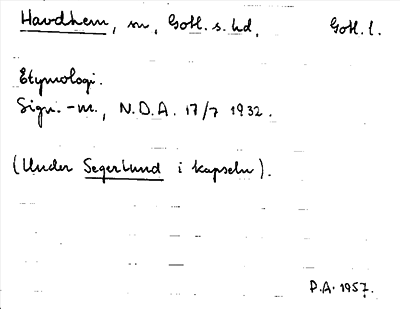 Havdhem, sn, Gotl. s. hd, Gotl. l.
Etymologi.
Sign. -m., N.D.A. 17/7 1932.
(Under Segerlund i kapseln).
P.A. 1957.